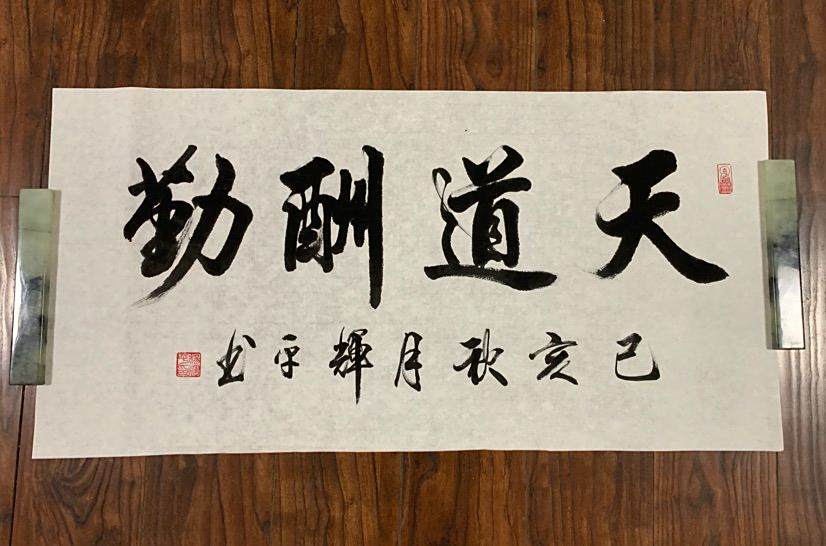 天道酬勤
己亥秋月輝平书